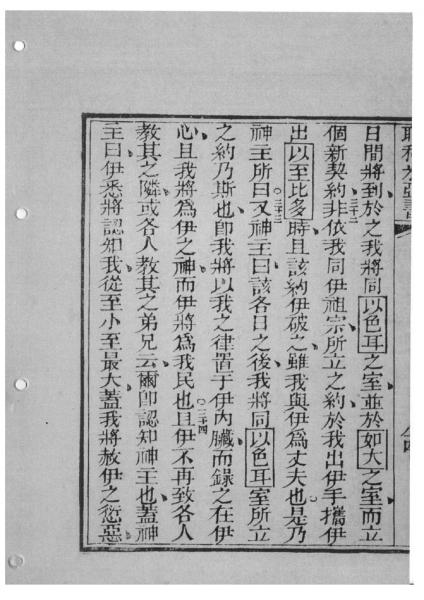 日間將到於之我將同以色耳之室並於如大之室而立
三十二
個新契約非依我同伊祖宗所立之約於我出伊手攜伊
出以至比多時且該約伊破之雖我與伊爲丈夫也是乃
三十三
神主所曰又神主曰該各日之後我將同以色耳室所立
之約乃斯也卽我將以我之律置于伊內臟而錄之在伊
心且我將爲伊之神而伊將爲我民也且伊不再致各人
三十四
教其之隣或各人教其之弟兄云爾卽認知神主也蓋神
主曰伊悉將認知我從至小至最大蓋我將赦伊之愆惡